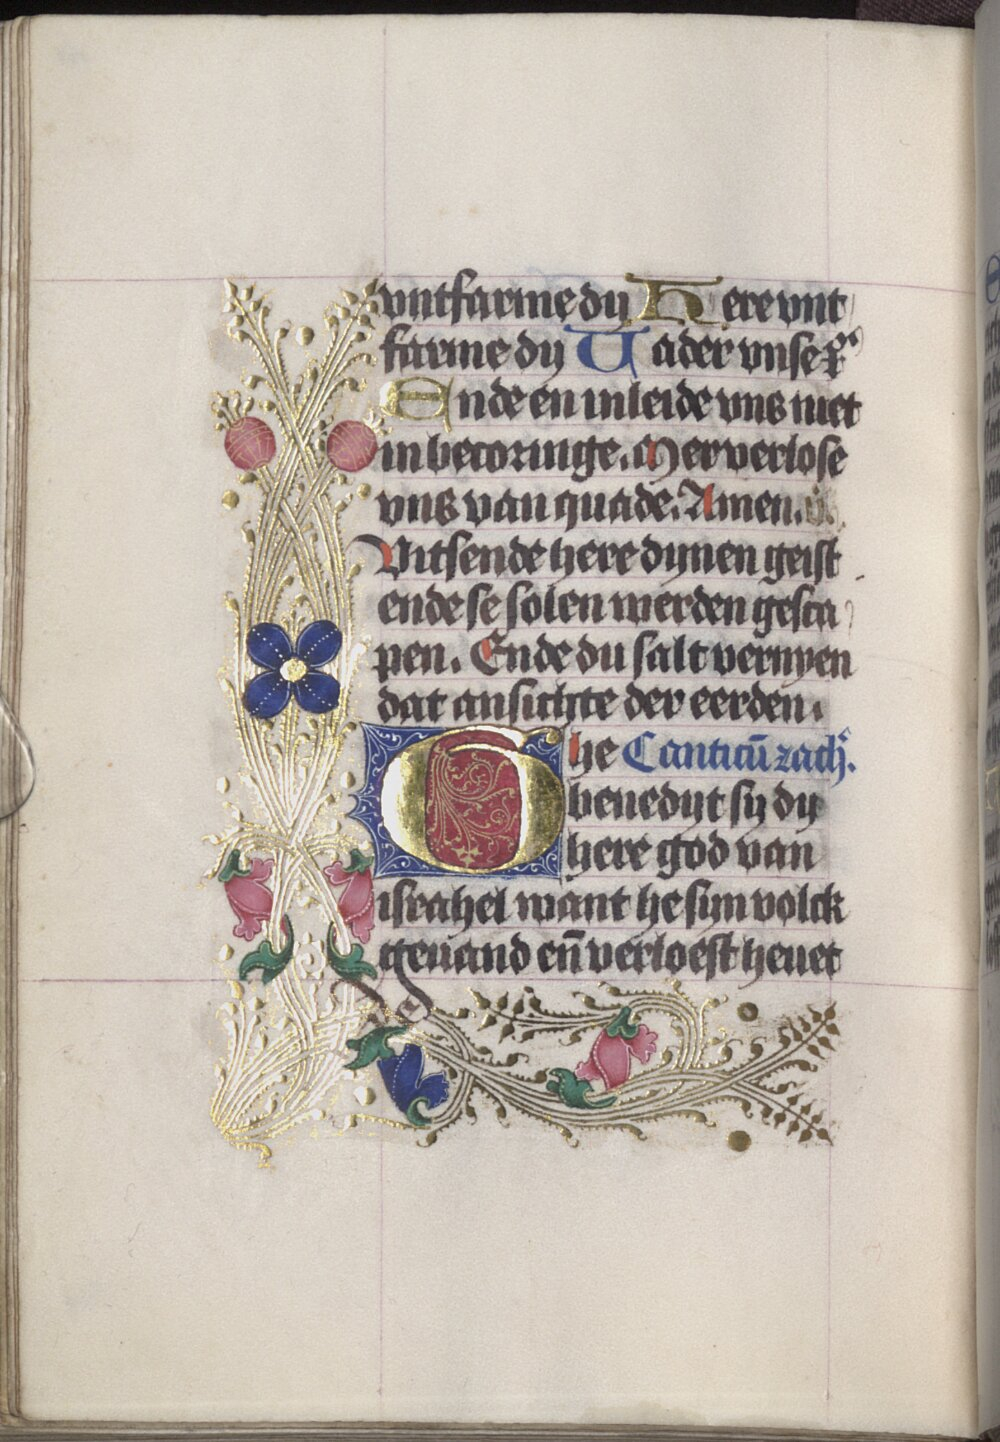 vntfarme dy Here vnt
farme dy Vader vnse xͬ
Ende en inleide vns niet
in becoringe. Mer verlose
vns van quade. Amen. ꝟ.
Vitsende here dynen geist
ende se solen werden gesca
pen. Ende du salt vernyen
dat ansichte der eerden.
Ghe Canticū zachͬ.
benedyt sy dy
here god van
israhel want he syn volck
geuand en̄ verloest heuet